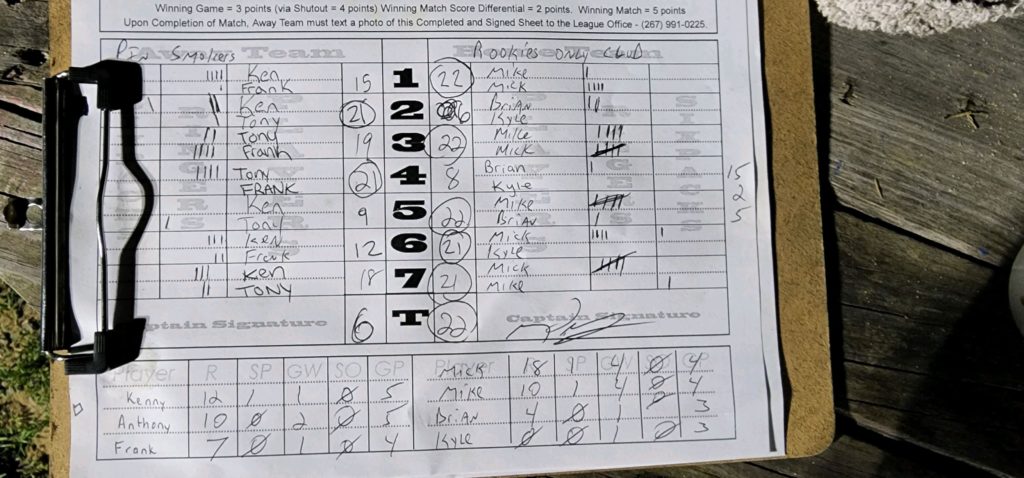 Winning Game = 3 points (via Shutout = 4 points) Winning Match Score Differential = 2 points. Winning Match = 5 points
Upon Completion of Match, Away Team must text a photo of this Completed and Signed Sheet to the League Office - (267) 991-0225.
Pin Smokers Rookies only club
Ken 15 1 22 Mike
Frank Mick
Ken 21 2 6 Brian
Tony Kyle
Tony 19 3 22 Mike
Frank Mick
Tony 21 4 8 Brian 15
FRANK Kyle 2
Ken 9 5 22 Mike 5
Tony Brian
Ken 12 6 21 Mick
Frank Kyle
Ken 18 7 21 Mick
TONY Mike
Captain Signature 6 T 22 Captain Signature
Player R SP GW SO GP Mick 18 1 4 0 4
Kenny 12 1 1 0 5 Mike 10 1 4 0 4
Anthony 10 0 2 0 5 Brian 4 0 1 3
Frank 7 0 1 0 4 Kyle 0 0 1 0 3